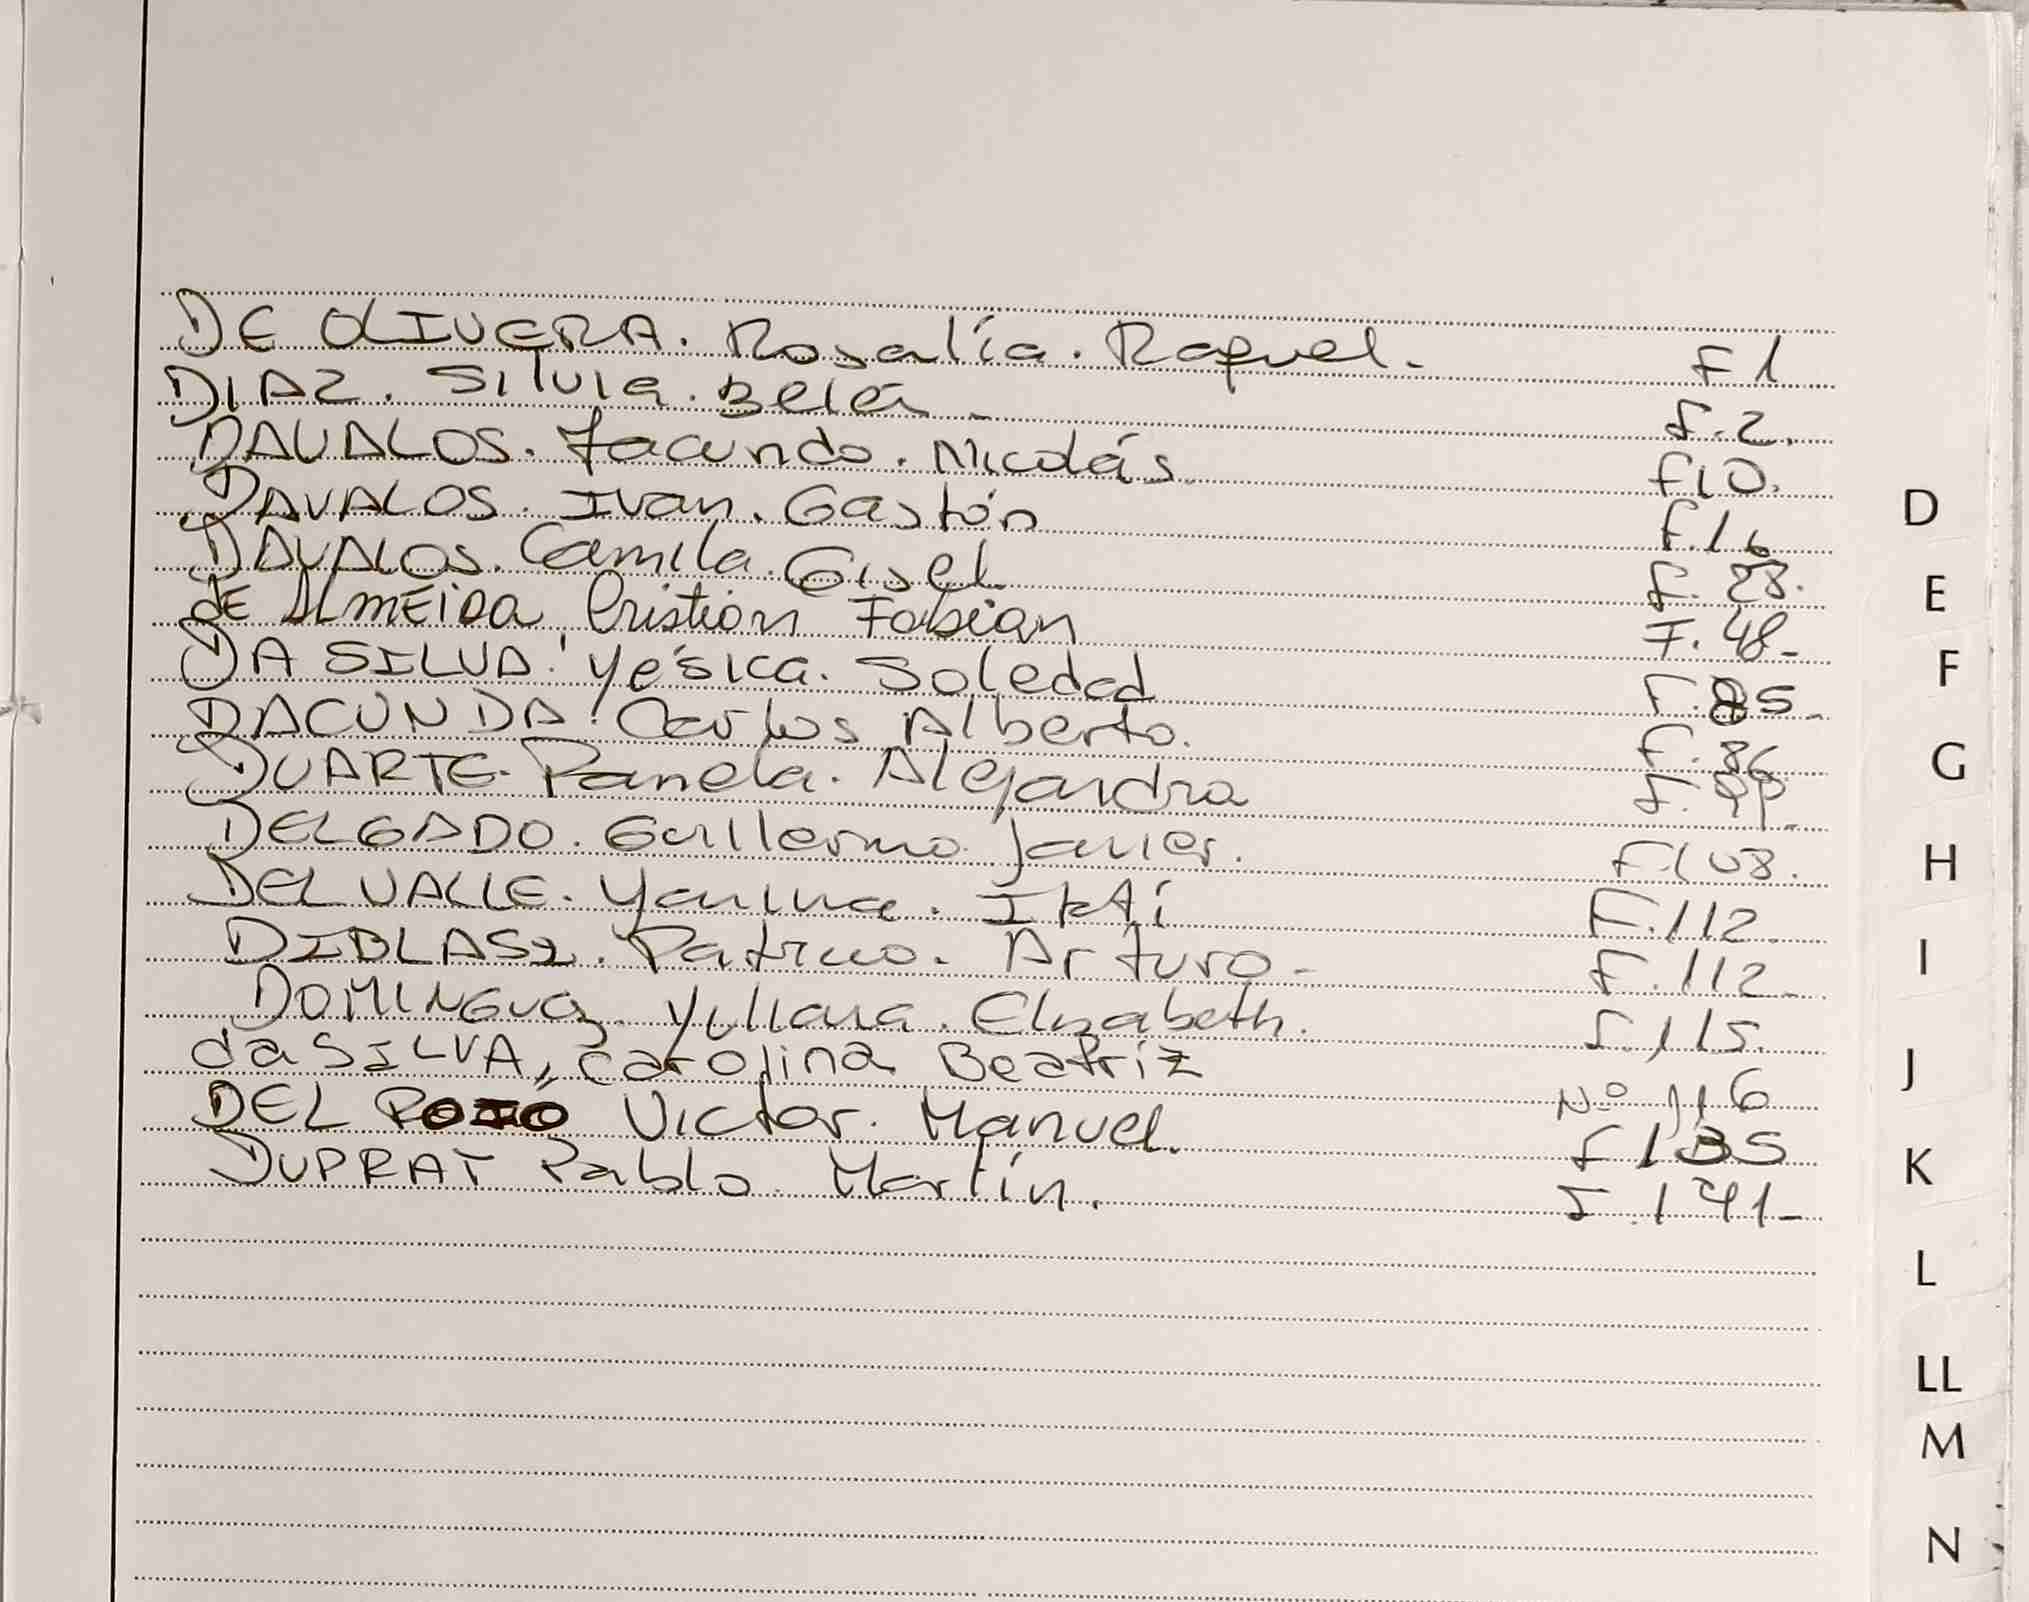 DE OLIVERA. Rosalía. Raquel. F 1
DIAZ. Silvia. Belén F.2.
DAVALOS. Facundo. Nicolás. F10.
DAVALOS. Ivan. Gastón F.16
DAVALOS. Camila. Gisel F. 28.
dE ALMEIDA, Cristian Fabian F. 48-
DA SILVA. Yésica. Soledad F.85-
DACUNDA. Carlos Alberto. F. 86
DUARTE. Pamela. Alejandra F. 99.
DELGADO. Guillermo Javier. F108.
DEL VALLE. Yanina. Itatí F.112.
DIBLASI. Patricio. Arturo- F.112-
DOMINGUEZ. Yuliana. Elizabeth. F.115.
daSILVA, Carolina Beatriz Nº 116
DEL POZO Victor. Manuel. F 135
DUPRAT Pablo Martín. F.141-
D
E
F
G
H
I
J
K
L
LL
M
N